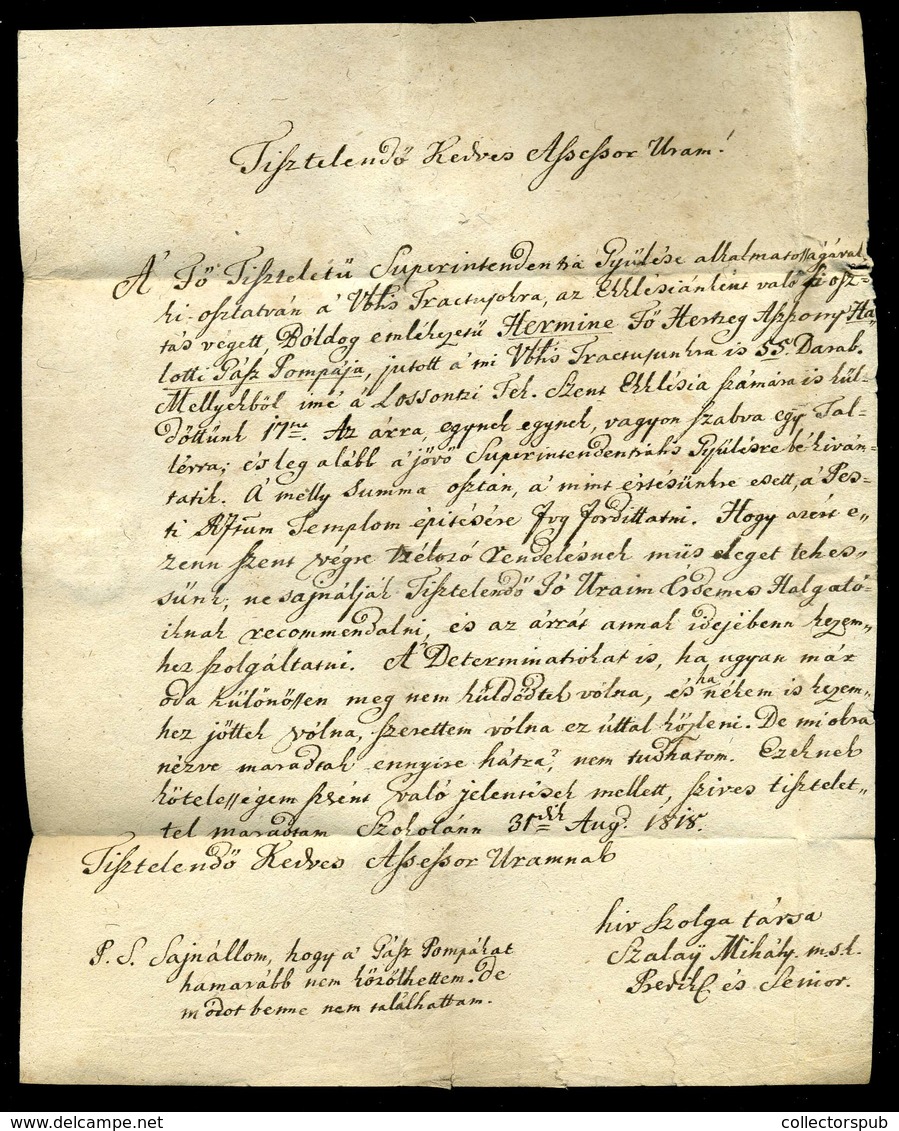 Tisztelendő Kedves Assessor Uram!
A' Fő Tiszteletű Superintendentia Gyűlése alkalmatosságával,
ki-osztatván a' Vbĺis Tractusokra, az Ekklésiánként való ki osz-
tás végett, Bóldog emlékezetű Hermine Fő Hertzeg Asszony Ha-
lotti Gász Pompája, jutott a' mi Vbĺis Tractusunkra is 55. Darab.
Mellyekből imé a' Lossontzi Ref. Szent Ekklésia számára is kül-
döttünk 17net. Az árra, egynek egynek, vagyon szabva egy Tal-
lérra; és leg alább a' jövő Superintendentiális Gyűlésre bé kiván-
tatik. A' melly Summa osztán, a' mint értésünkre esett, a' Pes-
ti Rftum Templom épitésére fog fordittatni. Hogy azért e-
zenn szent végre tzélozó rendelésnek mü is eleget tehes-
sünk, ne sajnálják Tisztelendő Jó Uraim Érdemes Halgató-
iknak recommendalni, és az árrát annak idejébenn kezem-
hez szolgáltatni. A' Determinatiókat is, ha ugyan már
oda különössen meg nem küldődtek vólna, és ha nékem is kezem-
hez jöttek vólna, szerettem vólna ez úttal közleni. De mi okra
nézve maradtak ennyire hátra, nem tudhatom. Ezeknek
kötelességem szerént való jelentések mellett, szives tisztelet-
tel maradtam Szokolánn 31dik Aug. 1818.
Tisztelendő Kedves Assessor Uramnak
hiv szolga társa
Szalaÿ Mihály m.s.k.
Prédik és Senior.
P. S. Sajnállom, hogy a' Gász Pompákat
hamarább nem közölhettem. de
módot benne nem találhattam.
collectorspub